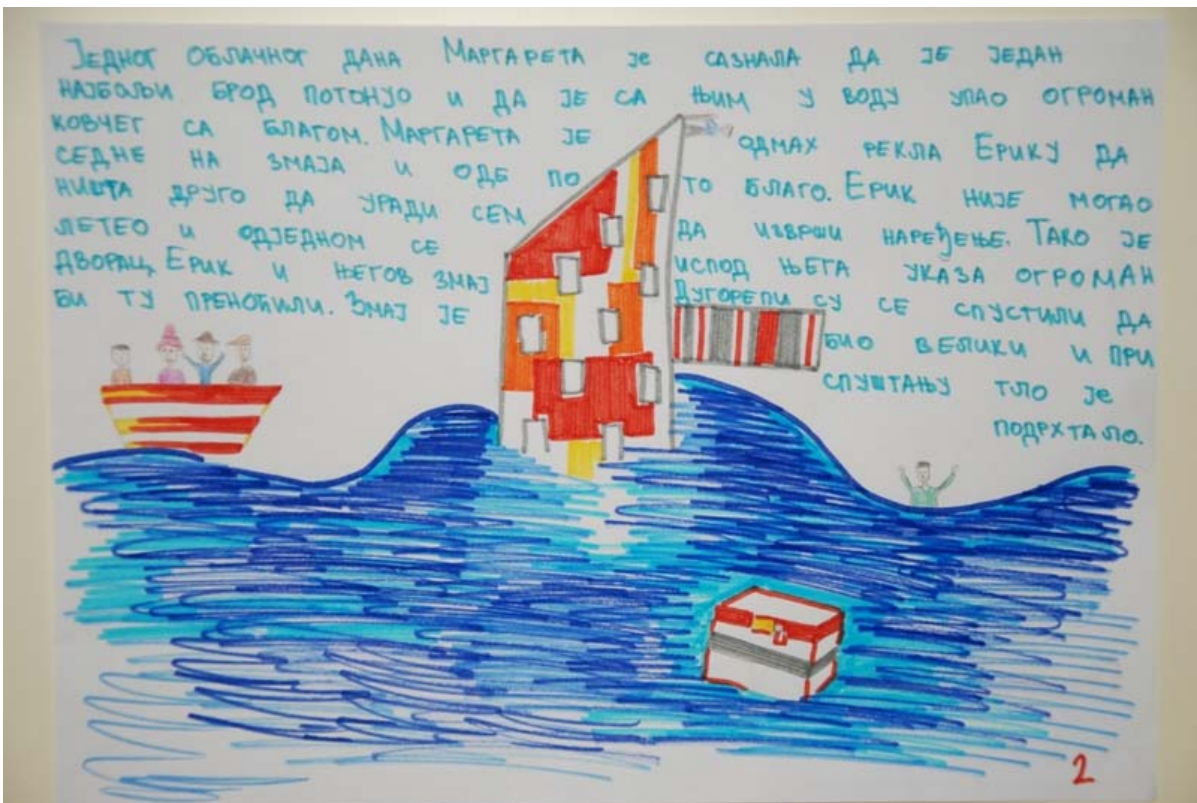 ЈЕДНОГ ОБЛАЧНОГ ДАНА МАРГАРЕТА ЈЕ САЗНАЛА ДА ЈЕ ЈЕДАН
НАЈБОЉИ БРОД ПОТОНУО И ДА ЈЕ СА ЊИМ У ВОДУ УПАО ОГРОМАН
КОВЧЕГ СА БЛАГОМ. МАРГАРЕТА ЈЕ ОДМАХ РЕКЛА ЕРИКУ ДА
СЕДНЕ НА ЗМАЈА И ОДЕ ПО ТО БЛАГО. ЕРИК НИЈЕ МОГАО
НИШТА ДРУГО ДА УРАДИ СЕМ ДА ИЗВРШИ НАРЕЂЕЊЕ. ТАКО ЈЕ
ЛЕТЕО И ОДЈЕДНОМ СЕ ИСПОД ЊЕГА УКАЗА ОГРОМАН
ДВОРАЦ. ЕРИК И ЊЕГОВ ЗМАЈ ДУГОРЕПИ СУ СЕ СПУСТИЛИ ДА
БИ ТУ ПРЕНОЋИЛИ. ЗМАЈ ЈЕ БИО ВЕЛИКИ И ПРИ
СПУШТАЊУ ТЛО ЈЕ
ПОДРХТАЛО.
2